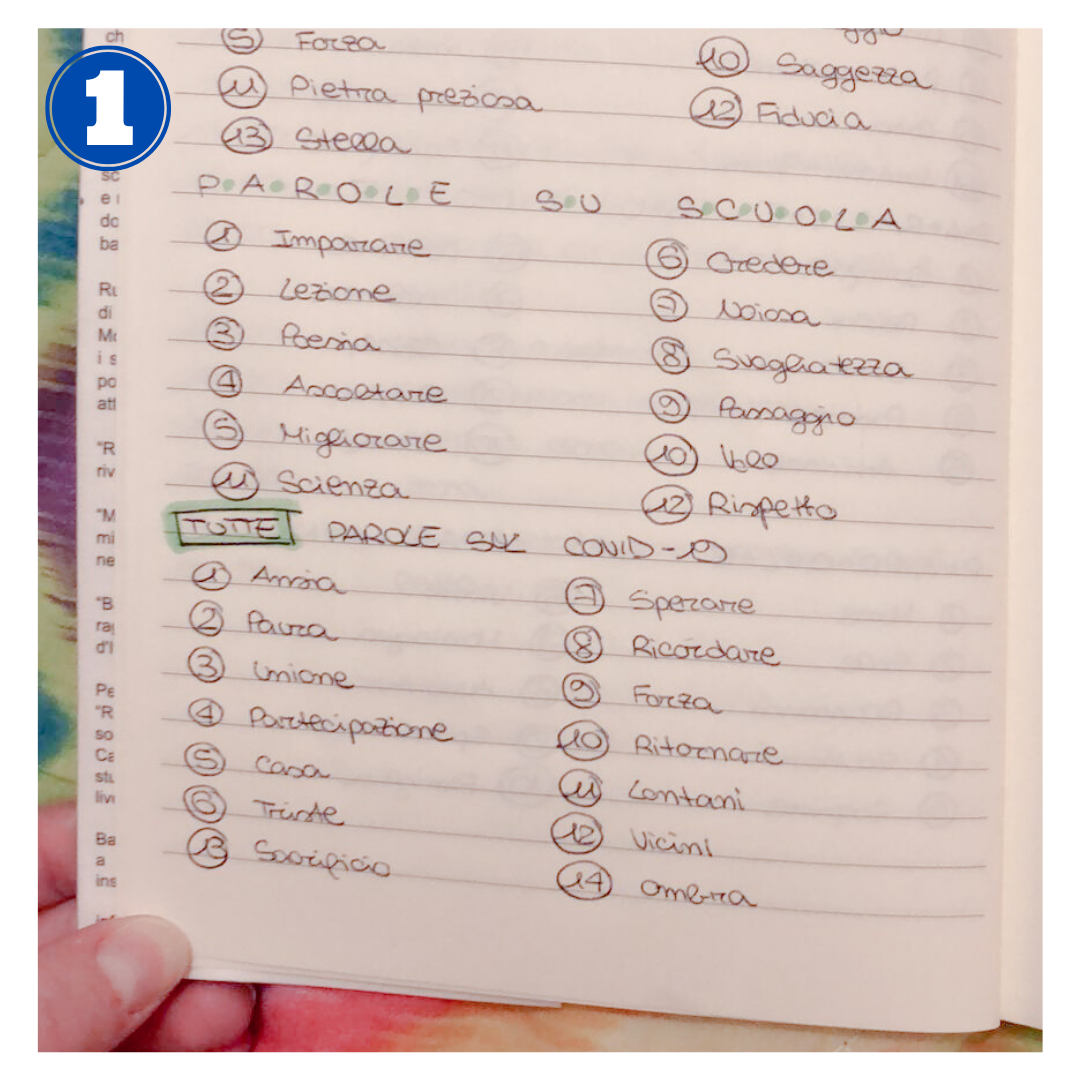 1
ch
5 Forza
10 Saggezza
11 Pietra preziosa
12 Fiducia
13 Stella
PAROLE SU SCUOLA
1 Imparare
6 Credere
2 Lezione
7 Noiosa
3 Poesia
8 Svogliatezza
4 Ascoltare
9 Passaggio
5 Migliorare
10 Volo
11 Scienza
12 Rispetto
TUTTE PAROLE SUL COVID-19
1 Ansia
7 Sperare
2 Paura
8 Ricordare
3 Unione
9 Forza
4 Partecipazione
10 Ritornare
5 Casa
11 Lontani
6 Triste
12 Vicini
13 Sacrificio
14 Ombra
sc
e
do
ba
Ru
di
Mo
i s
po
att
"R
riv
"M
mi
ne
"B
ra
d'I
Pe
"R
so
Ca
stu
livi
Ba
a
ins